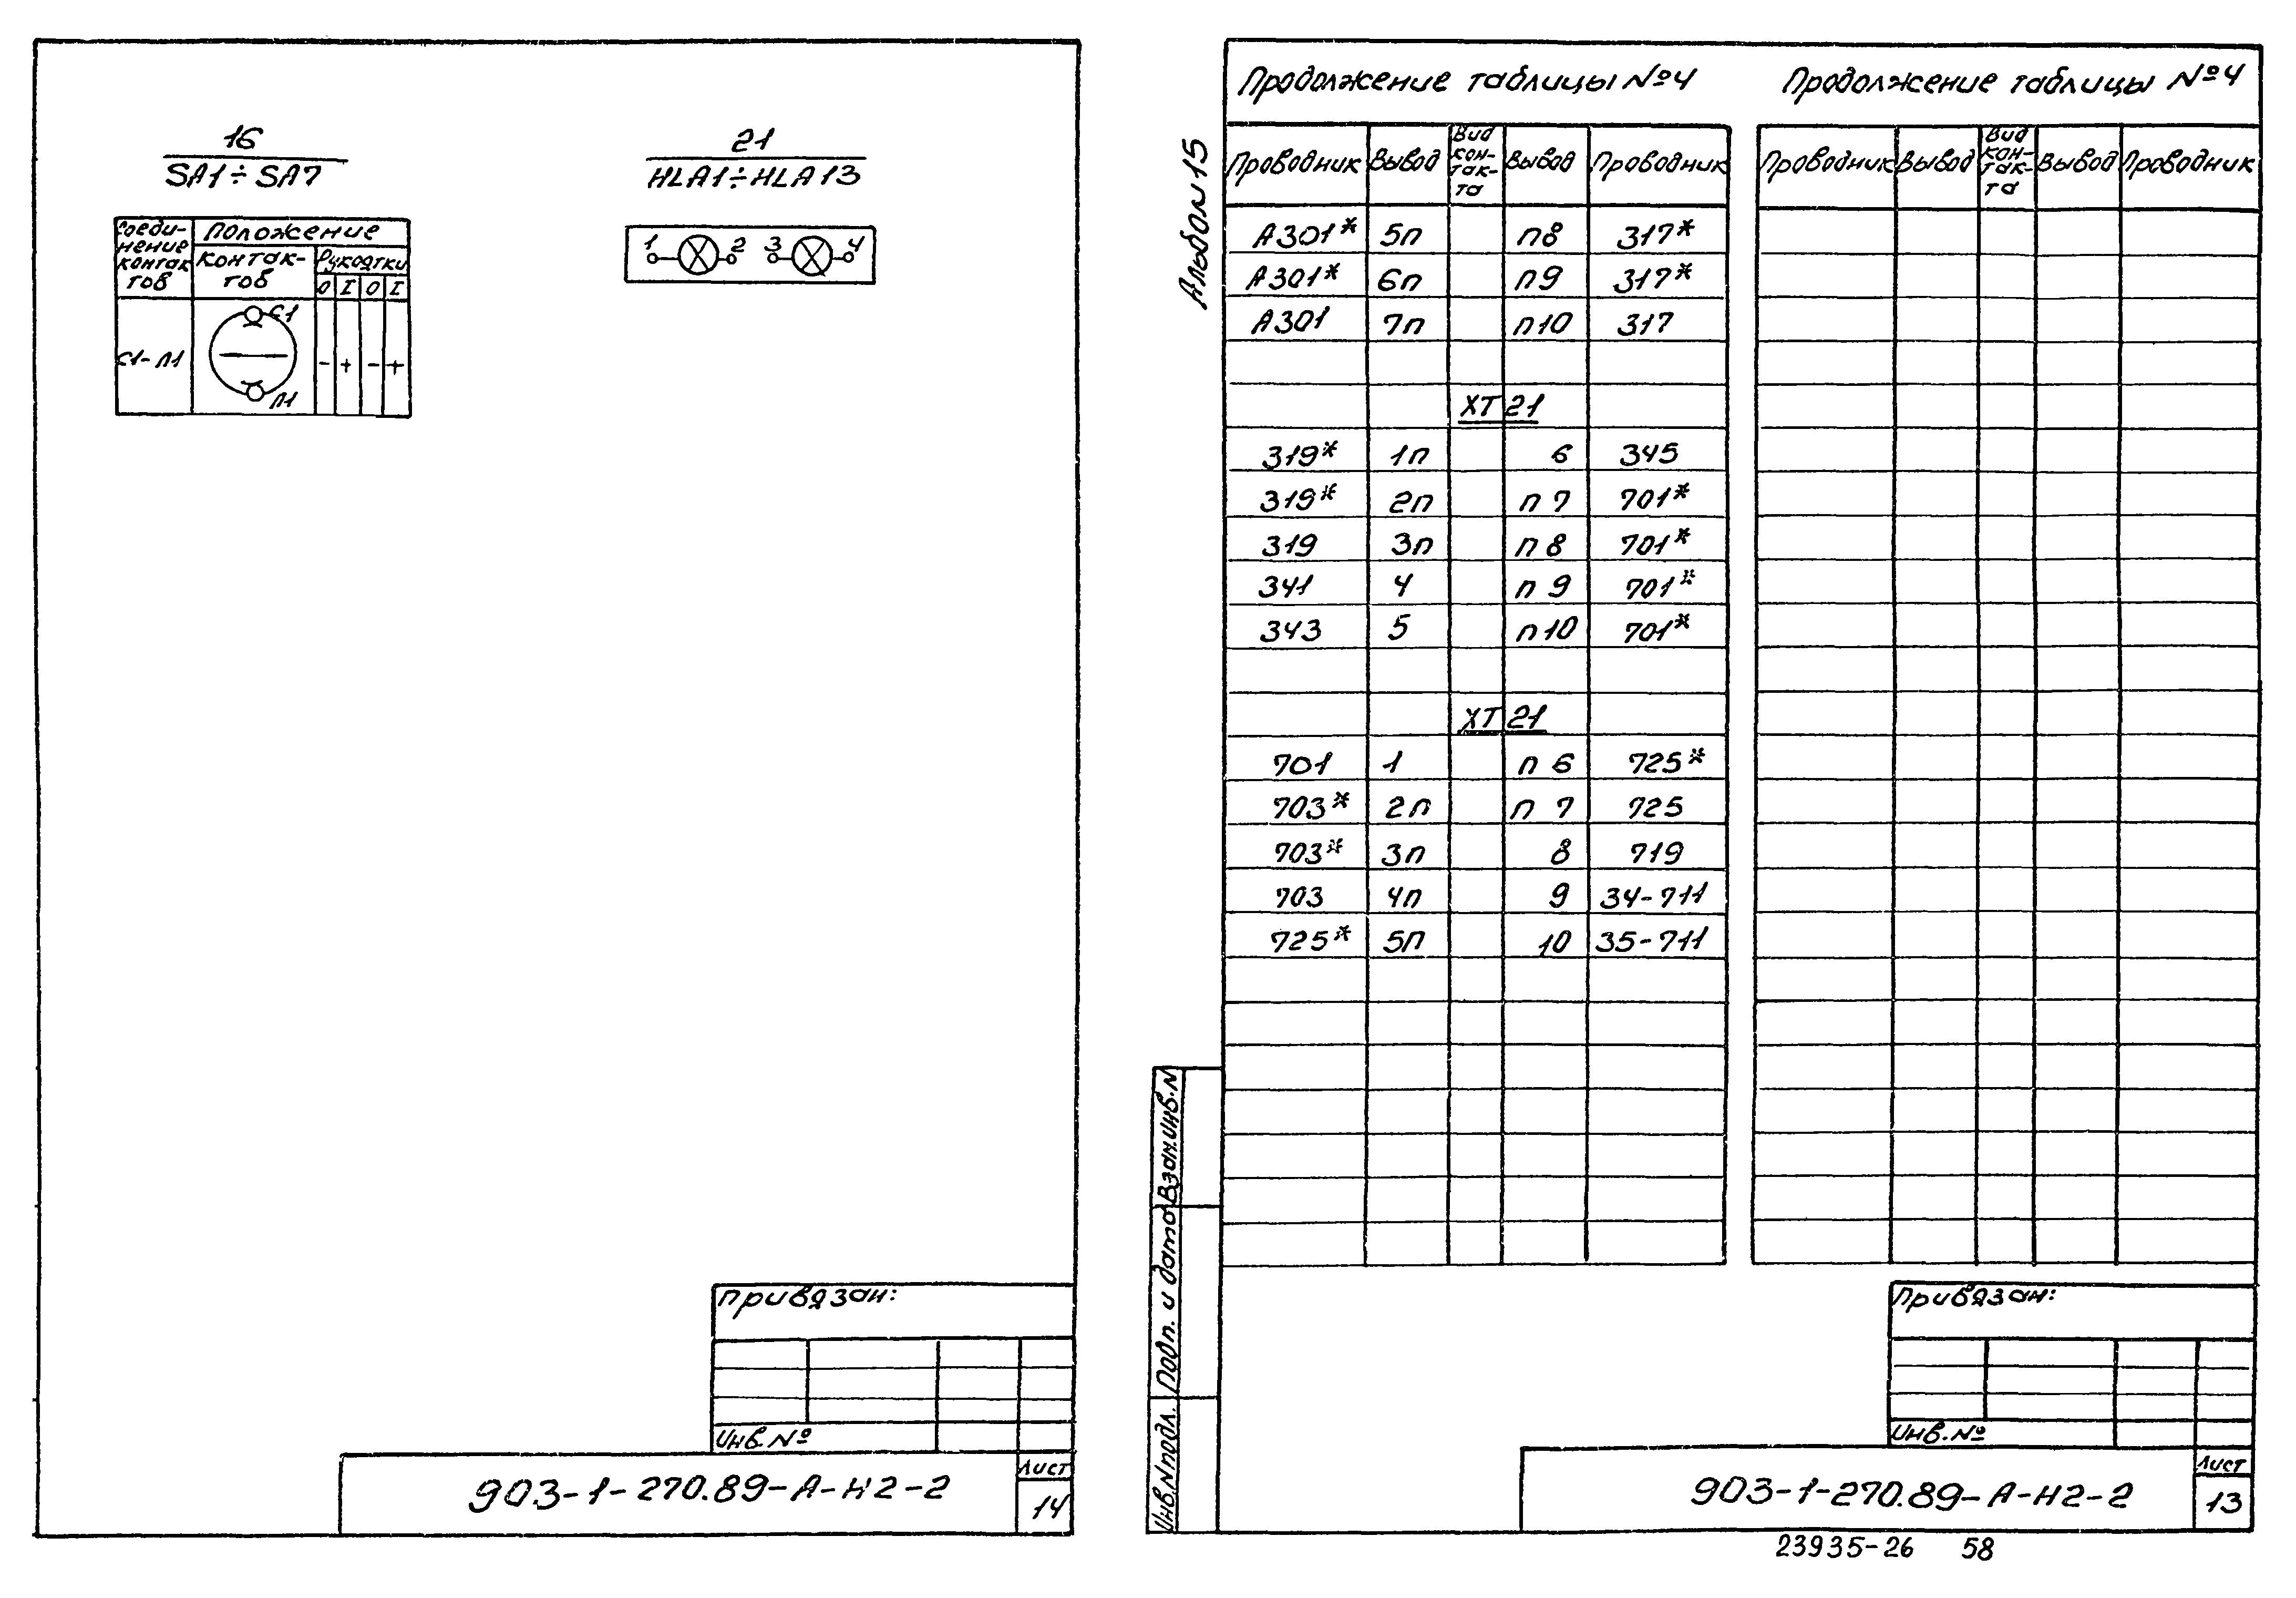 16
SA1÷SA7
21
HLA1÷HLA13
Соеди-
нение
контак
тов
Положение
контак-
тов
Рукоятки
0 I 0 I
С1-Л1
С1
Л1
- + - +
1 2 3 4
Привязан:
Инв.№
903-1-270.89-А-Н2-2
Лист
14
Альбом 15
Продолжение таблицы №4
Проводник Вывод Вид кон-так-та Вывод Проводник
А301* 5п п8 317*
А301* 6п п9 317*
А301 7п п10 317
ХТ 21
319* 1п 6 345
319* 2п п 7 701*
319 3п п 8 701*
341 4 п 9 701*
343 5 п10 701*
ХТ 21
701 1 п 6 725*
703* 2п п 7 725
703* 3п 8 719
703 4п 9 34-711
725* 5п 10 35-711
Продолжение таблицы №4
Проводник Вывод Вид кон-так-та Вывод Проводник
Взам.инв.N
Подп. и дата
Инв.Nподл.
Привязан:
Инв.№
903-1-270.89-А-Н2-2
Лист
13
23935-26 58